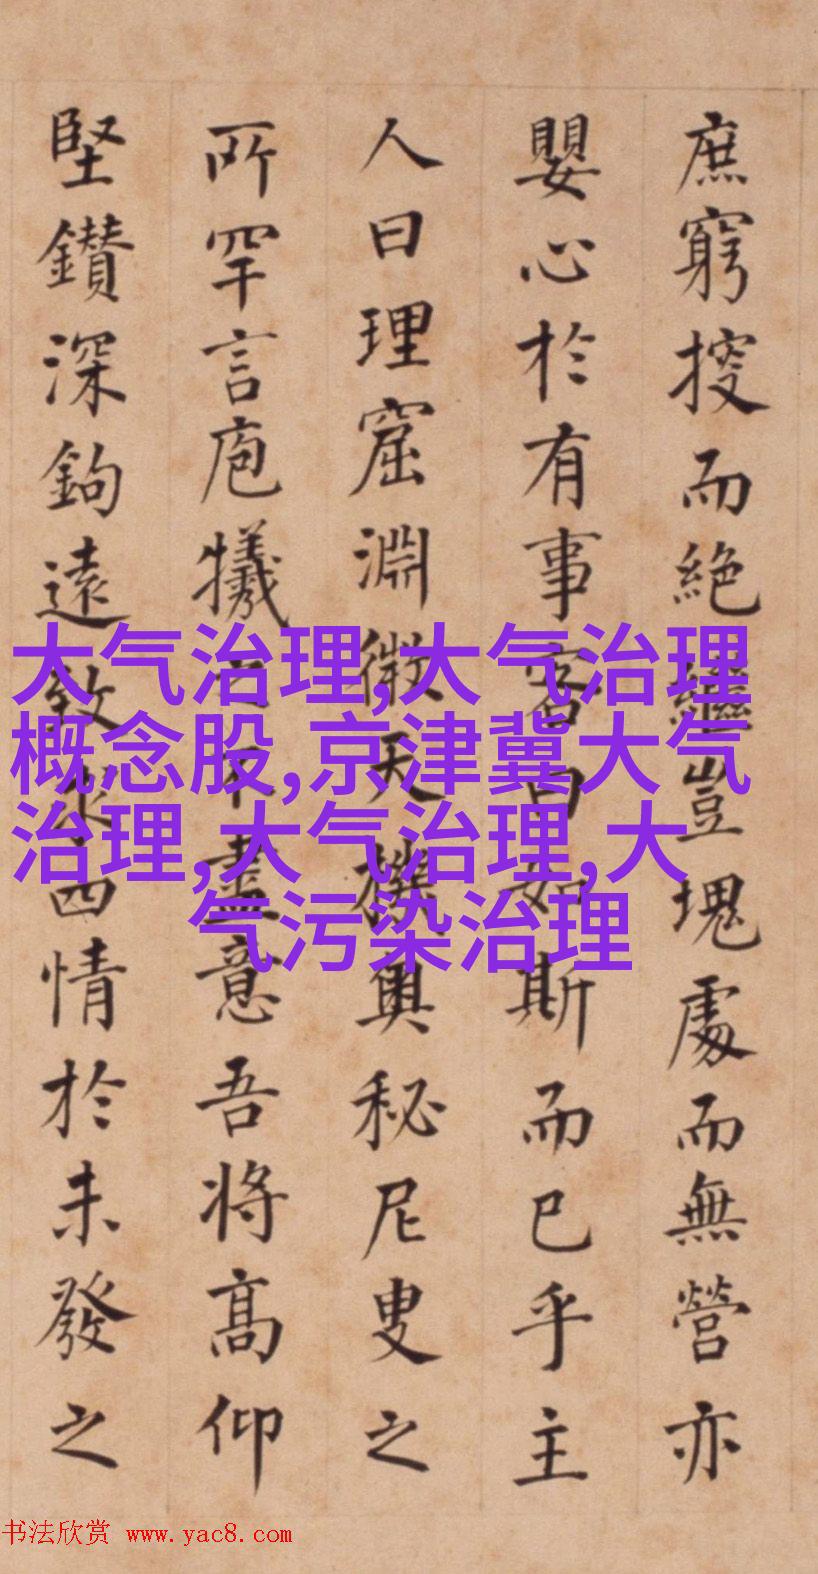 庶窮搜而絶繼豈塊處而無營亦
嬰心於有事客曰如斯而已乎主
人曰理窟淵微天機奥秘尼叟之
所罕言庖犧之不盡意吾将髙仰
堅鑚深鉤遠四情於未發之
大气治理,大气治理
概念股,京津冀大气
治理,大气治理,大
气污染治理
书法欣赏 www.yac8.com